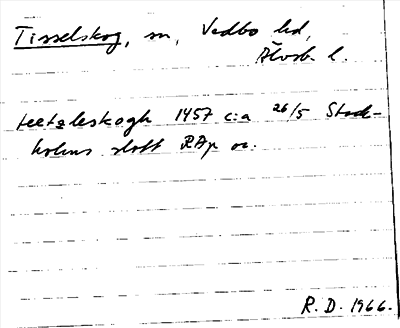 Tisselskog, sn, Vedbo hd,
Älvsb. l.
teetzleskogh 1457 c:a 26/5 Stock-
holms slott RAp or.
R. D. 1966.